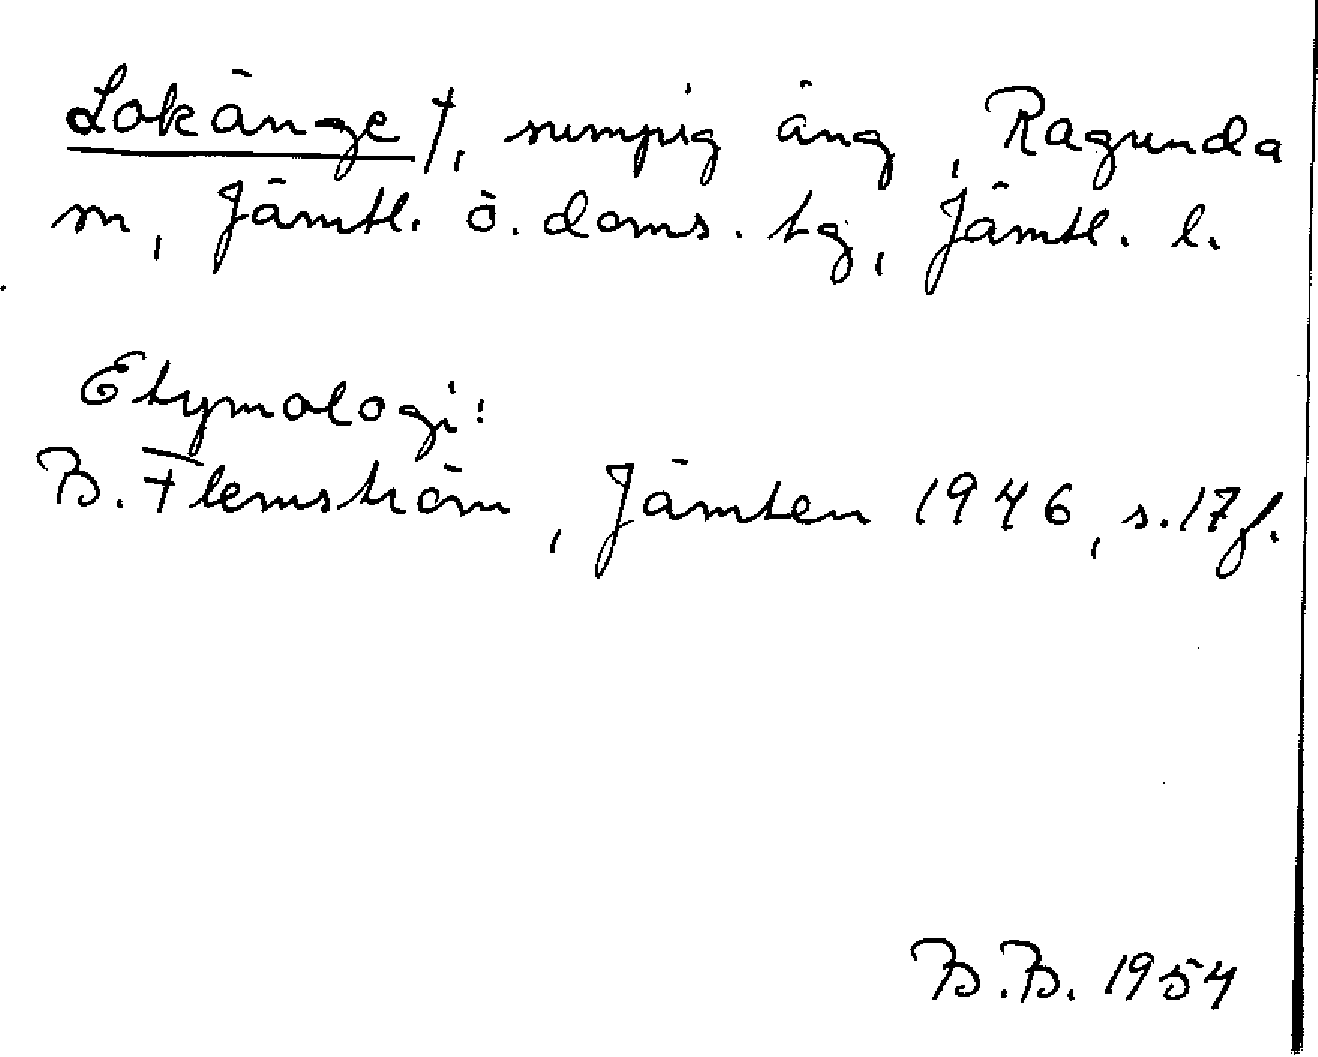 Lokänge †, sumpig äng, Ragunda
sn, Jämtl. ö. doms. tg, Jämtl. l.
Etymologi:
B. Flemström, Jämten 1946, s. 17 f.
B.B. 1954